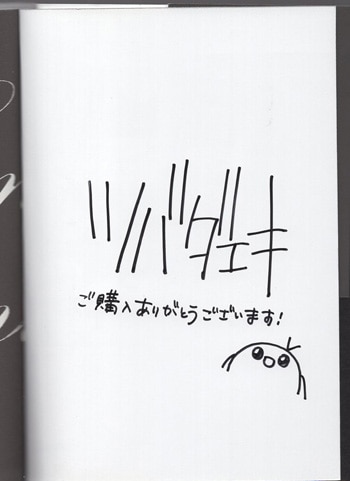 ツバダエキ
ご購入ありがとうございます!